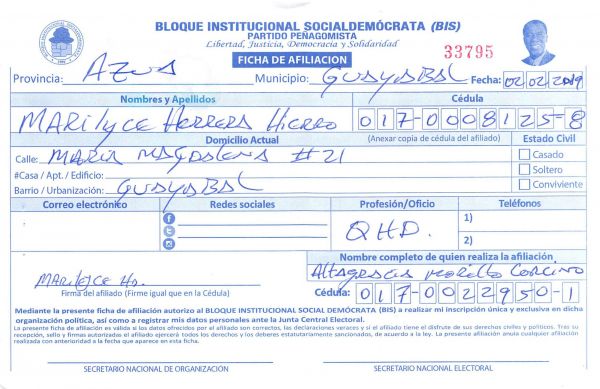 BLOQUE INSTITUCIONAL SOCIALDEMÓCRATA (BIS)
PARTIDO PEÑAGOMISTA
Libertad, Justicia, Democracia y Solidaridad
FICHA DE AFILIACION
33795
Provincia: AZUA Municipio: GUAYABAL Fecha: 02/02/2019
Nombres y Apellidos Cédula
MARILYCE HERRERA HIERRO 017-0008125-8
Domicilio Actual (Anexar copia de cédula del afiliado) Estado Civil
Calle: MARIA MAGDALENA #21 Casado
#Casa / Apt. / Edificio: Soltero
Barrio / Urbanización: GUAYABAL Conviviente
Correo electrónico Redes sociales Profesión/Oficio Teléfonos
QHD. 1)
2)
Nombre completo de quien realiza la afiliación
MARILYCE Altagracia Morillo Corcino
Firma del afiliado (Firme igual que en la Cédula) Cédula: 017-0022950-1
Mediante la presente ficha de afiliación autorizo al BLOQUE INSTITUCIONAL SOCIAL DEMÓCRATA (BIS) a realizar mi inscripción única y exclusiva en dicha
organización política, así como a registrar mis datos personales ante la Junta Central Electoral.
La presente ficha de afiliación es válida si los datos ofrecidos por el afiliado son correctos, las declaraciones veraces y si el afiliado tiene el disfrute de sus derechos civiles y políticos. Tras su
recepción, sello y firma autorizados el afiliado ejercerá todos los derechos y los deberes estatutariamente sancionados, de acuerdo a la ley. La presente afiliación anula cualquier afiliación
realizada con anterioridad a la fecha que aparece en esta ficha.
SECRETARIO NACIONAL DE ORGANIZACIÓN SECRETARIO NACIONAL ELECTORAL